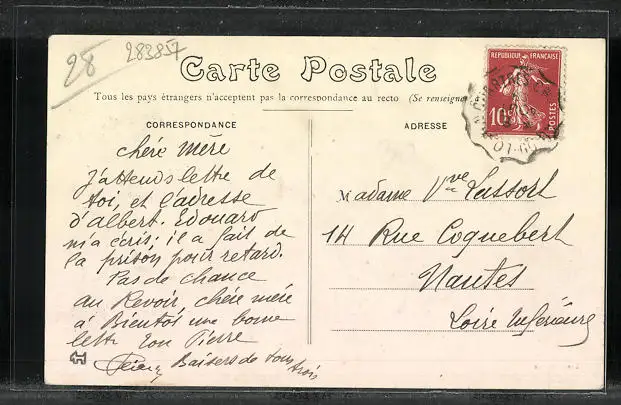 28
283857
Carte Postale
Tous les pays étrangers n'acceptent pas la correspondance au recto (Se renseigner
REPUBLIQUE FRANÇAISE
10
POSTES
CORRESPONDANCE
ADRESSE
chère mère
J'attends lettre de
toi, et l'adresse
d'albert. Edouard
m'a écris; il a fait de
la prison pour retard.
Pas de chance
au Revoir, chère mère
à Bientôt une bonne
lettre ton Pierre
Baisers de tous
trois
Madame Vve Lassort
14 Rue Coquebert
Nantes
Loire Inférieure